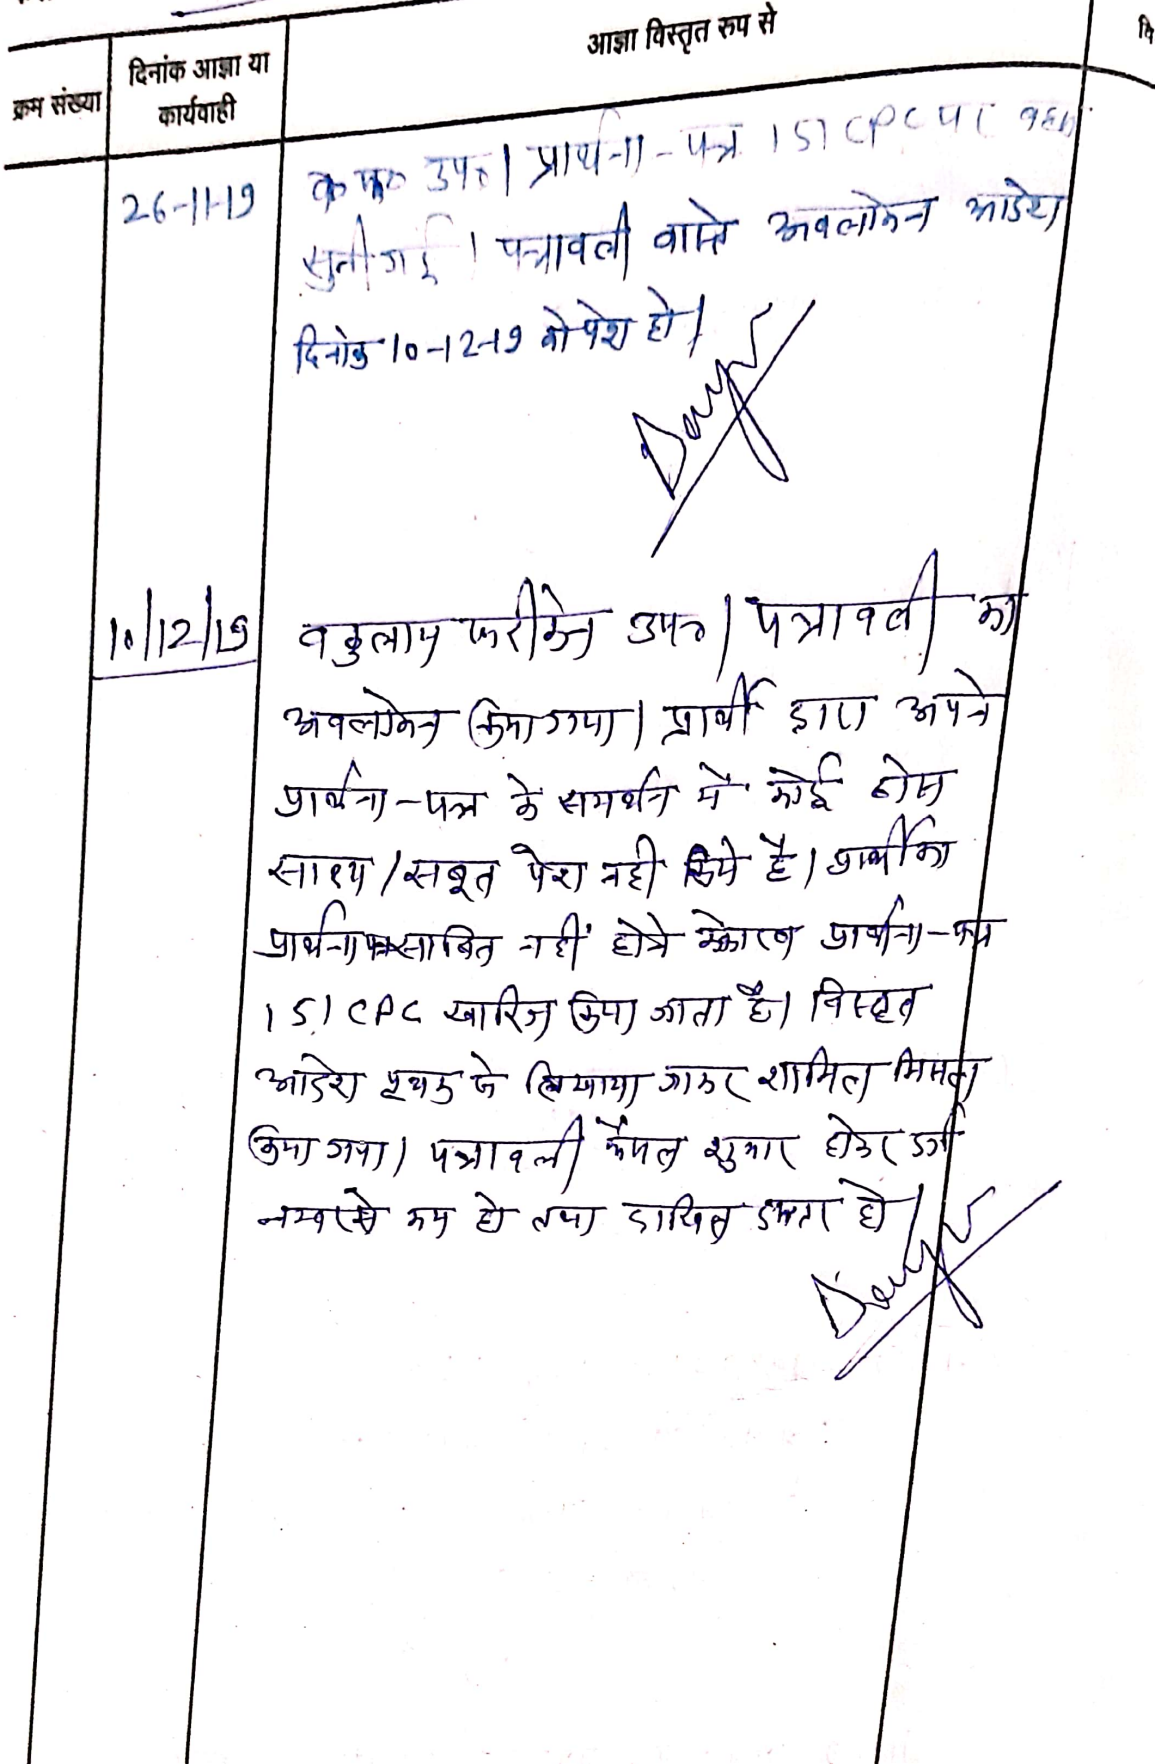 आज्ञा विस्तृत रुप से
क्रम संख्या
दिनांक आज्ञा या
कार्यवाही
वि
26-11-19
उप0। प्रार्थना-पत्र 151 CPC पर बहस
सुनी गई। पत्रावली वास्ते अवलोकन आदेश
दिनांक 10-12-19 को पेश हो।
10/12/19
वकुलाय फरीकेन उप0। पत्रावली का
अवलोकन किया गया। प्रार्थी द्वारा अपने
प्रार्थना-पत्र के समर्थन में कोई ठोस
साक्ष्य/सबूत पेश नही किये है। प्रार्थी का
प्रार्थना पत्र साबित नहीं होने के कारण प्रार्थना-पत्र
151 CPC खारिज किया जाता है। विस्तृत
आदेश पृथक से लिखाया जाकर शामिल मिसल
किया गया। पत्रावली फैसल शुमार होकर दर्ज
नम्बर से कम हो तथा दाखिल दफ्तर हो।